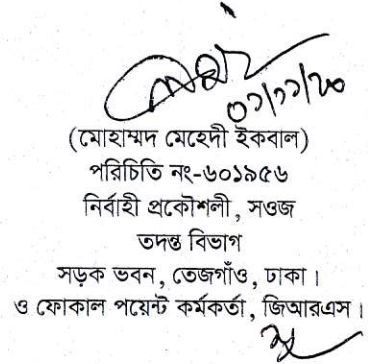 ০১/১১/২০
(মোহাম্মদ মেহেদী ইকবাল)
পরিচিতি নং-৬০১৯৫৬
নির্বাহী প্রকৌশলী, সওজ
তদন্ত বিভাগ
সড়ক ভবন, তেজগাঁও, ঢাকা।
ও ফোকাল পয়েন্ট কর্মকর্তা, জিআরএস।